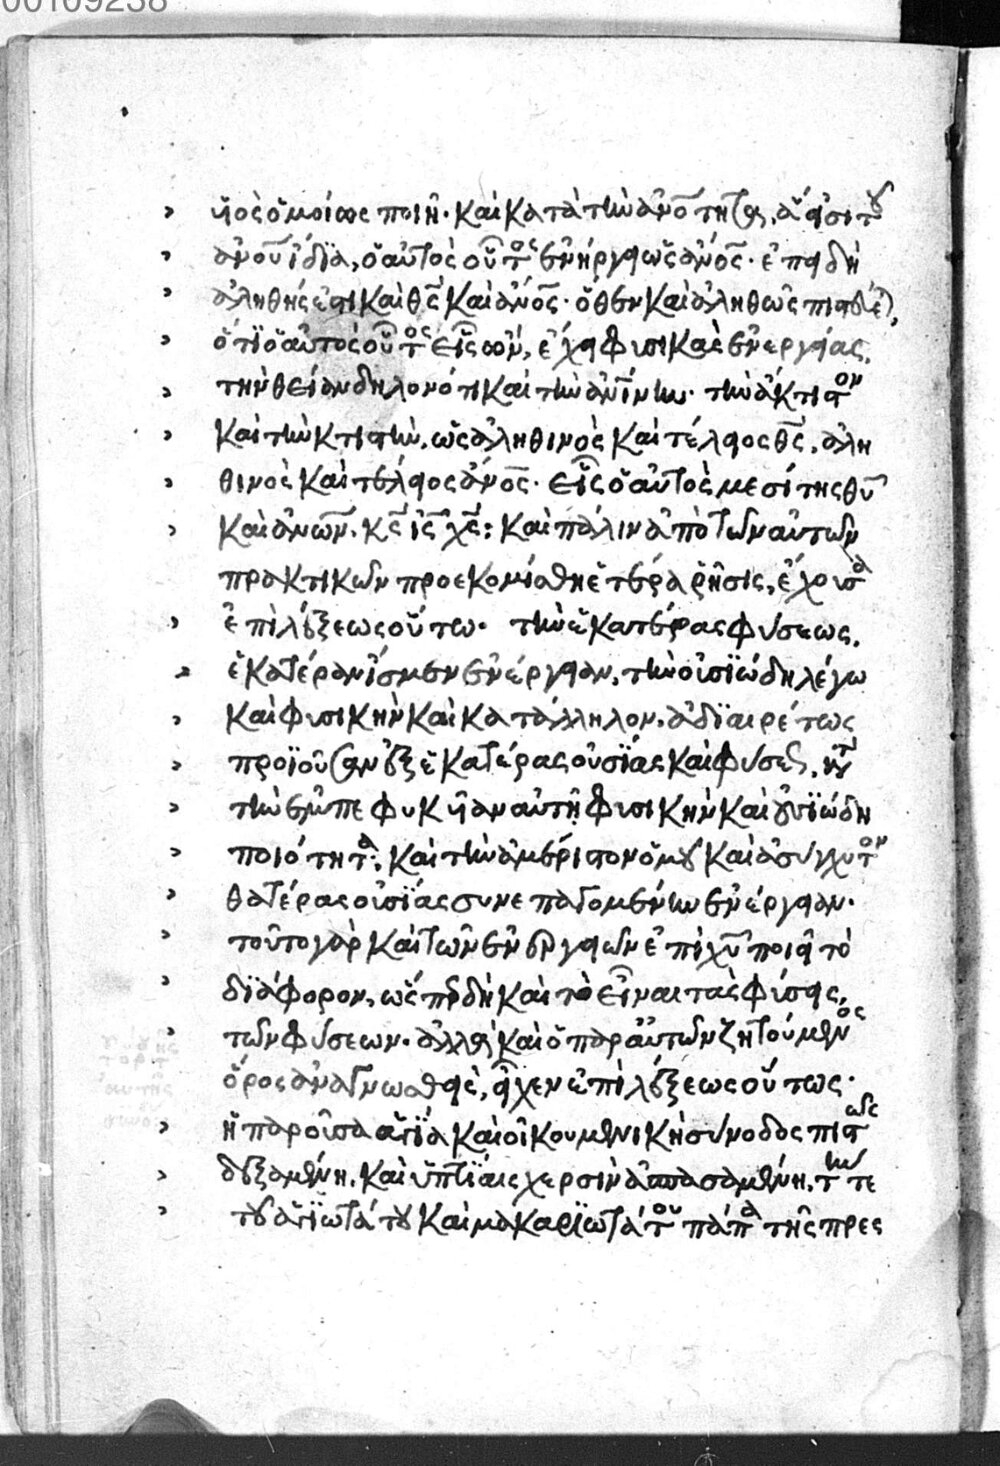 υἱὸς ὁμοίως ποιεῖ· καὶ κατὰ τὴν ἀνο̅τητα, ἅ εἰσι τοῦ
ἀνο̅υ ἴδια, ὁ αὐτὸς οὗτος ἐνήργει ὡς ἀνο̅ς· ἐπειδὴ
ἀληθής ἐστι καὶ θς̅ καὶ ἀνο̅ς· ὅθεν καὶ ἀληθῶς πιστεύε),
ὅτι ὁ αὐτὸς οὗτος εἷς ὢν, ἔχει φύσικὰς ἐνεργείας,
τὴν θείαν δηλονότι καὶ τὴν ἀνίνην· τὴν ἄκτιστον
καὶ τὴν κτιστὴν, ὡς ἀληθινὸς καὶ τέλειος θς̅, ἀλη
θινὸς καὶ τέλειος ἀνο̅ς· εἷς ὁ αὐτὸς μεσίτης θυ̅
καὶ ἀνω̅ν. κς̅ ις̅ χς̅: καὶ πάλιν ἀπὸ τῶν αὐτῶν
πρακτικῶν προεκομίσθη ἑτέρα ῥῆσις, ἔχουσα
ἐπὶ λέξεως οὕτω· τὴν ἑκατέρας φύσεως,
ἑκατέραν ἴσμεν ἐνέργειαν, τὴν οὐσιώδη λέγω
καὶ φυσικὴν καὶ κατάλληλον, ἀδιαιρέτως
προϊοῦσαν ἐξ ἑκατέρας οὐσίας καὶ φύσεως,
τὴν ἐμπεφυκυῖαν αὐτῇ φυσικὴν καὶ οὐσιώδη
ποιότητα· καὶ τὴν ἀμέριστον ὁμοῦ καὶ ἀσύγχυτον
θατέρας οὐσίας συνεπαγομένην ἐνέργειαν·
τοῦτο γὰρ καὶ τῶν ἐνεργειῶν ἐπὶ χυ̅ ποιεῖ τὸ
διάφορον, ὥσπερ δὴ καὶ τὸ εἶναι τὰς φύσεις,
τῶν φύσεων· ἀλλὰ καὶ ὁ παρ' αὐτῶν ζητούμενος
ὅρος ἀναγνωσθεὶς, εἶχεν ἐπὶ λέξεως οὕτως·
ἡ παροῦσα ἁγία καὶ οἰκουμενικὴ σύνοδος πιστῶς
δεξαμένη, καὶ ὑπτίαις χερσὶν ἀσπασαμένη, τήν τε
τοῦ ἁγιωτάτου καὶ μακαριωτάτου πάπα τῆς πρεσ